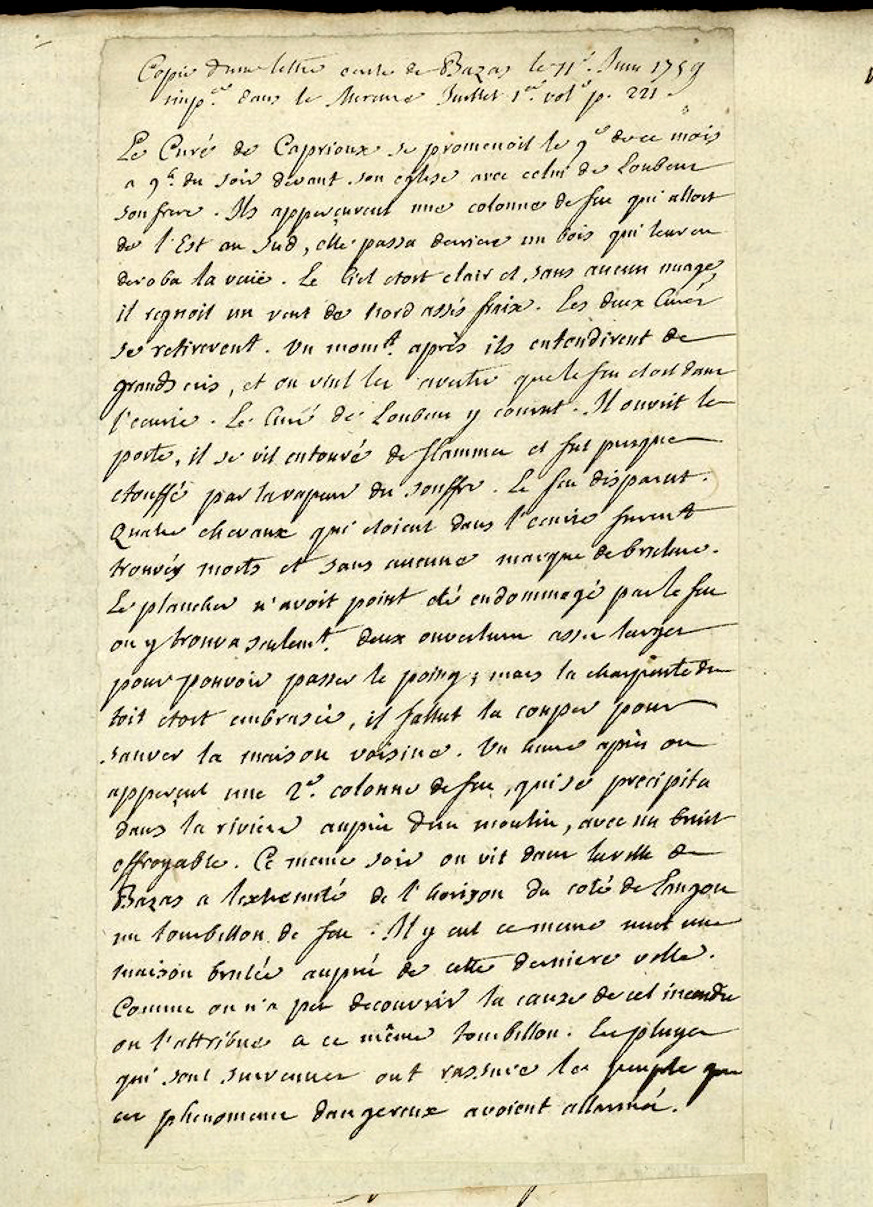 Copie d'une lettre ecrite de Bazas le 11e. Juin 1759
imp.ée dans le Mercure Juillet 1er. vole p. 221.
Le Curé de Caprioux se promenoit le 9e de ce mois
a 9h. du soir devant son eglise avec celui de Loubens
son frere. Ils apperçurent une colonne de feu qui alloit
de l'Est au Sud, elle passa derriere un bois qui leur en
deroba la vuë. Le Ciel etoit clair et sans aucun nuage,
il regnoit un vent de Nord assés fraix. Les deux Curés
se retirerent. Un momt. après ils entendirent de
grands cris, et on vint les avertir que le feu etoit dans
l'ecurie. Le Curé de Loubens y courut. Il ouvrit la
porte, il se vit entouré de flammes et fut presque
etouffé par la vapeur du souffre. Le feu disparut.
Quatre chevaux qui etoient dans l'ecurie furent
trouvés morts et sans aucune marque de brulure.
Le plancher n'avoit point eté endommagé par le feu
on y trouva seulemt. deux ouvertures assez larges
pour pouvoir passer le poing; mais la charpente du
toit etoit embrasée, il fallut la couper pour
sauver la maison voisine. Un heure après on
apperçut une 2e. colonne de feu, qui se precipita
dans la riviere auprès d'un moulin, avec un bruit
effroyable. Ce meme soir on vit dans la ville de
Bazas a l'extremité de l'horizon du coté de Langon
un tourbillon de feu. Il y eut ce meme nuit une
maison brulée auprès de cette derniere ville.
Comme on n'a pu decouvrir la cause de cet incendie
on l'attribue a ce même tourbillon. Les pluyes
qui sont survenues ont rassuré les peuples que
ces phenomenes dangereux avoient allarmé.